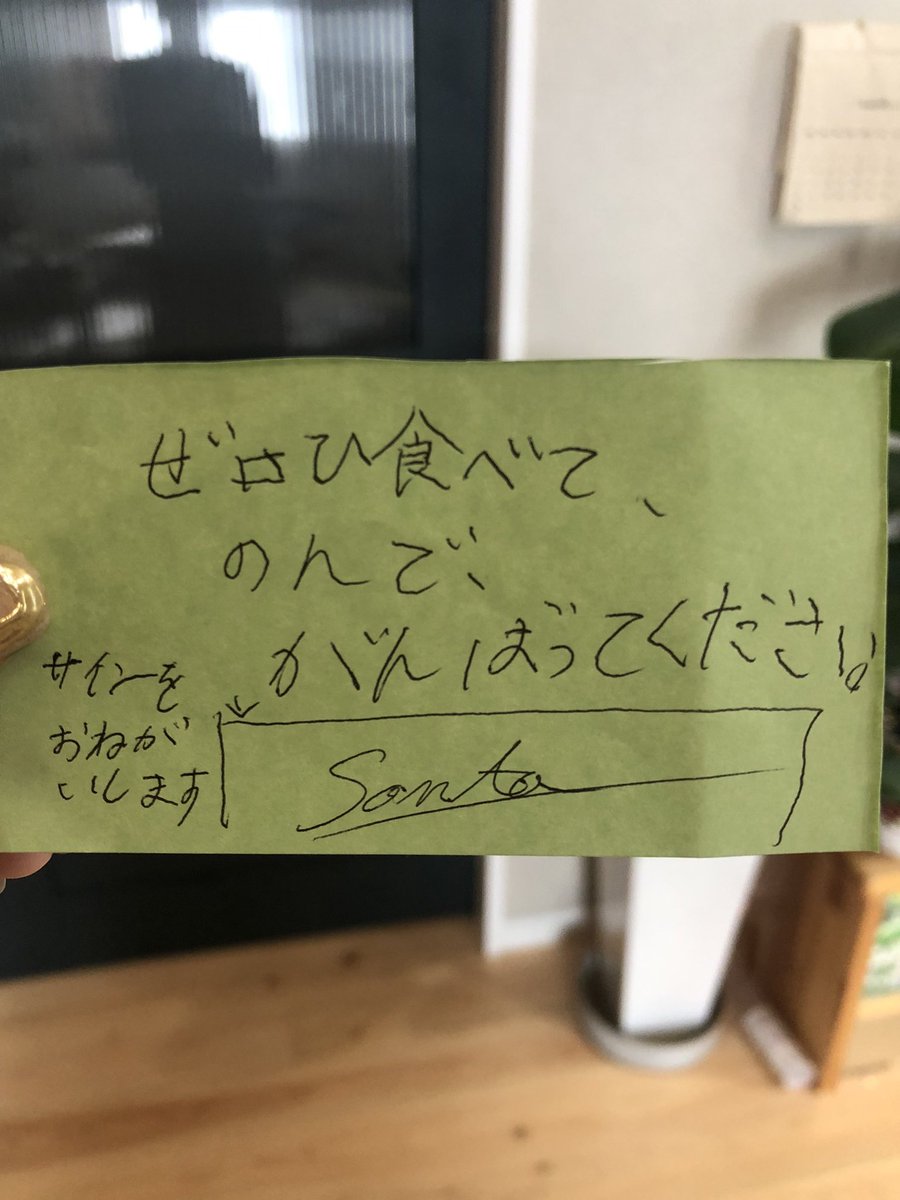 ぜひ食べて、
のんで、
がんばってください
サインを
おねが
いします
Santa